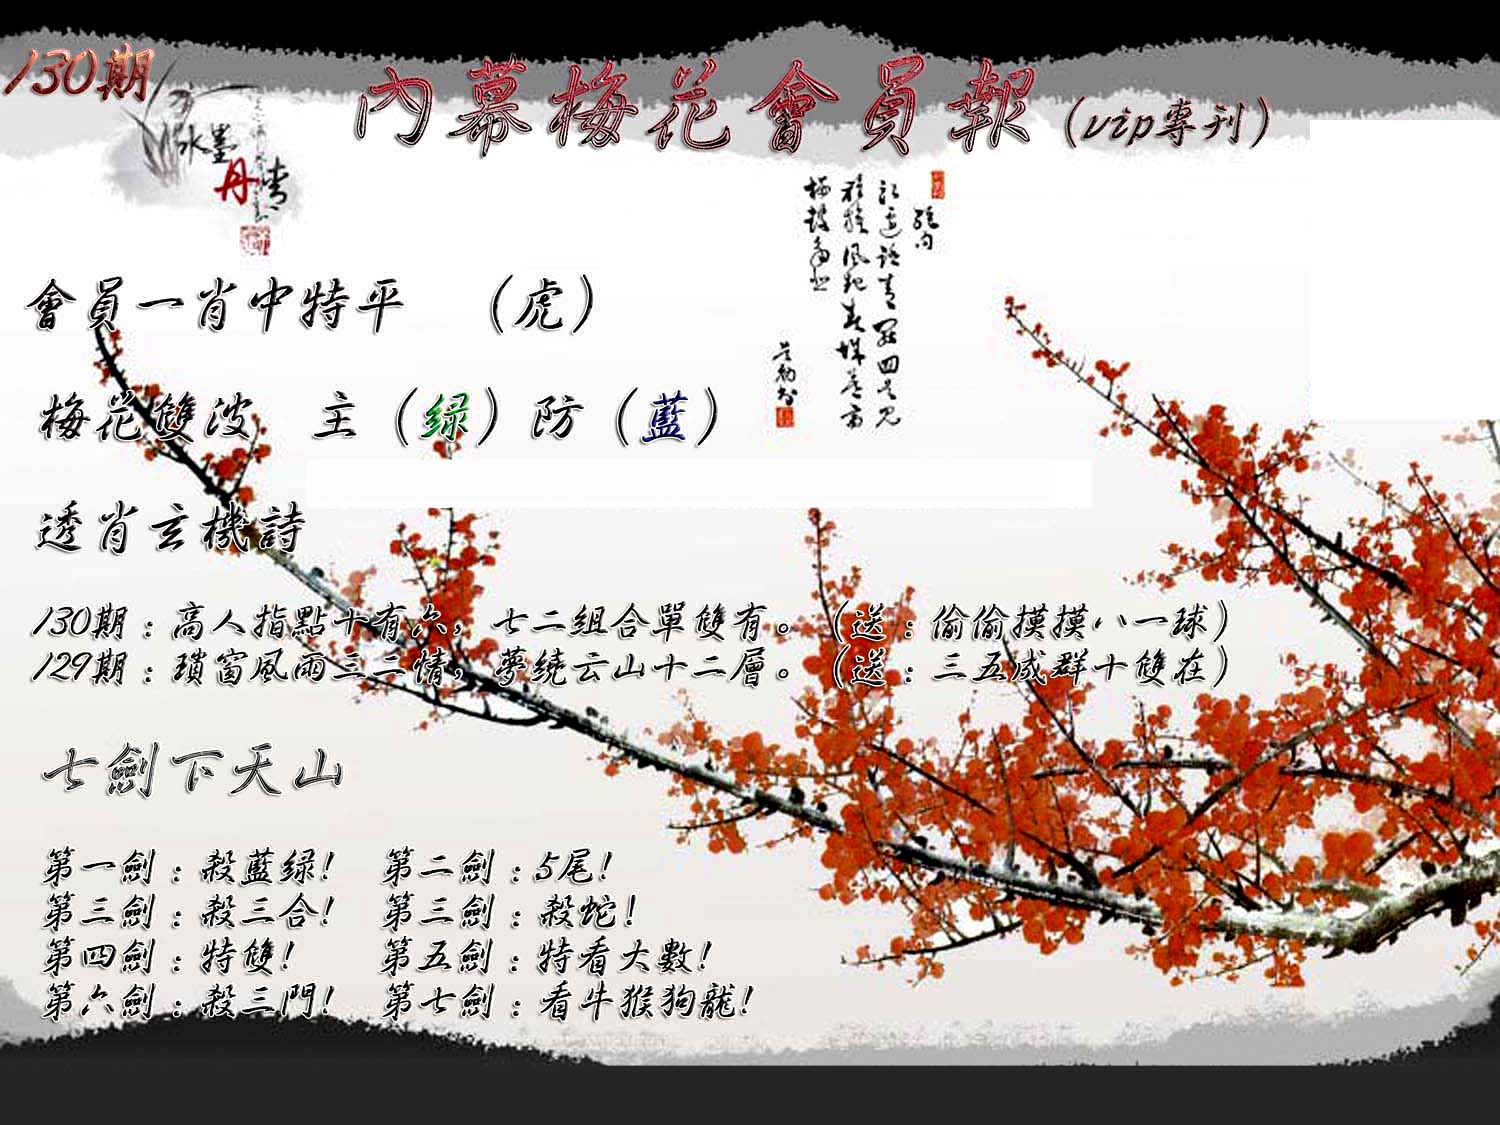 130期
內幕梅花會員報(vip專刊)
水墨
丹青
會員一肖中特平 (虎)
梅花雙波 主(绿)防(藍)
透肖玄機詩
130期:高人指點十有六,七二组合單雙有。(送:偷偷摸摸八一球)
129期:瑣窗風雨三二情,夢繞云山十二層。(送:三五成群十雙在)
七劍下天山
第一劍:殺藍绿! 第二劍:5尾!
第三劍:殺三合! 第三劍:殺蛇!
第四劍:特雙! 第五劍:特看大數!
第六劍:殺三門! 第七劍:看牛猴狗龍!